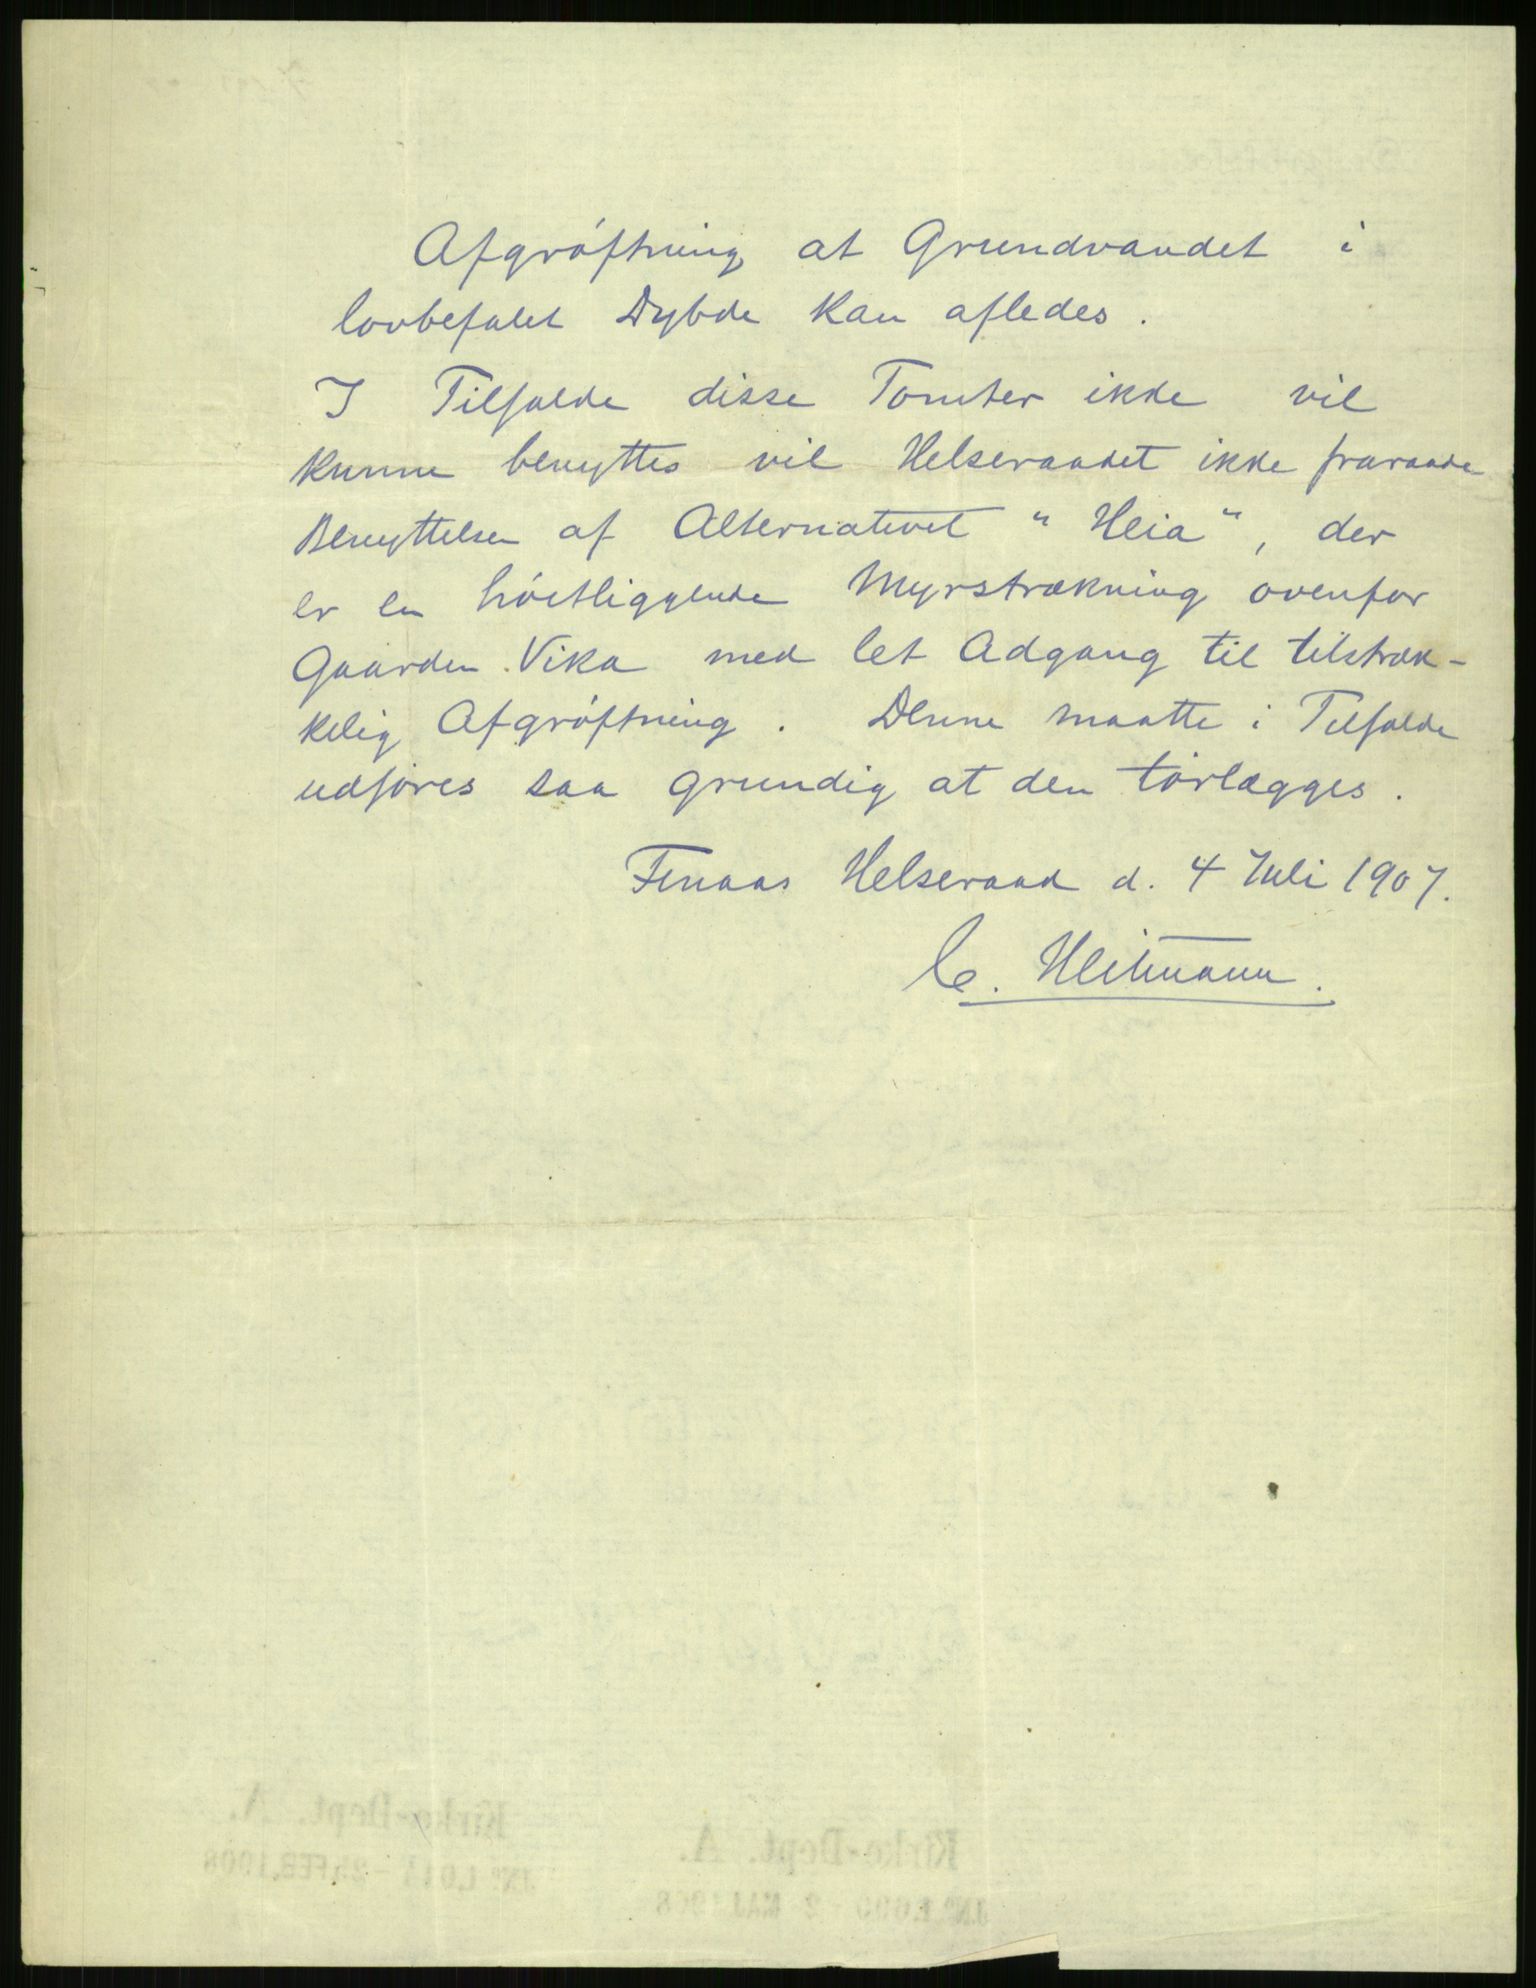 Afgrøftning at Grundvandet i
lovbefalet Dybde kan afledes.
I Tilfælde disse Tomter ikke vil
kunne benyttes vil Helseraadet ikke fraraade
Benyttelsen af Alternativet "Heia", der
er en høitliggende Myrstrækning ovenfor
Gaarden Vika med let Adgang til tilstræk-
kelig Afgrøftning. Denne maatte i Tilfælde
udføres saa grundig at den tørlægges.
Fenaas Helseraad d. 4 Juli 1907.
C. Heitmann.
Kirke-Dept. A.
Kirke-Dept. A.
FEB. 1908
2 MAJ 1908